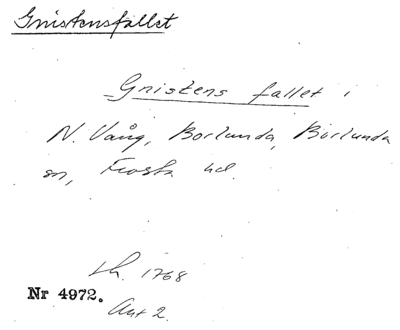 Gnistensfallet
Gnistens fallet i
N. Vång, Borlunda, Borlunda
sn, Frosta hd.
Lh. 1768
Nr 4972.
Akt 2.